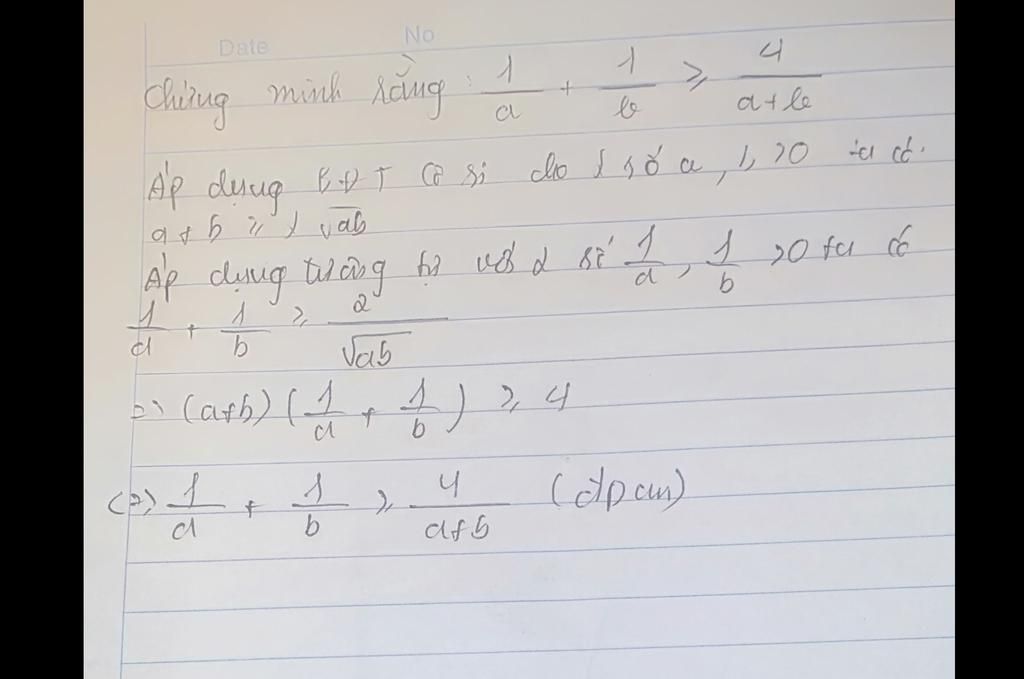 Date No
Chứng minh rằng: 1/a + 1/b ≥ 4/(a+b)
Áp dụng BĐT Cô si cho 2 số a, b >0 ta có.
a+b ≥ 2√ab
Áp dụng tương tự với 2 số 1/a, 1/b >0 ta có
1/a + 1/b ≥ 2/√ab
=> (a+b)(1/a + 1/b) ≥ 4
(=>) 1/a + 1/b ≥ 4/(a+b) (đpcm)